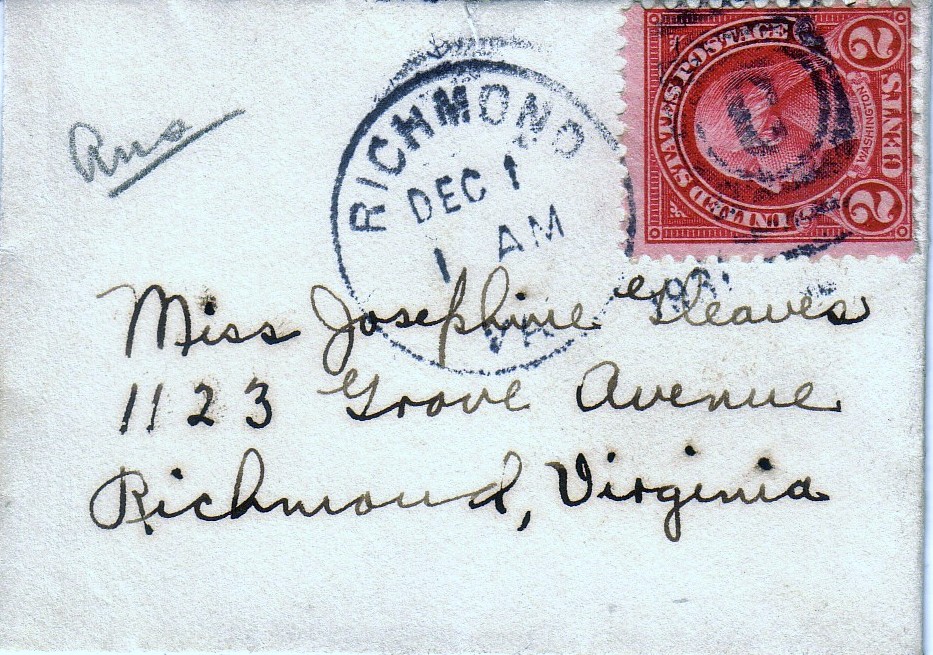 Ans
RICHMOND
DEC 1
1 AM
VA.
UNITED STATES POSTAGE
WASHINGTON
2 CENTS 2
Miss Josephine
1123 Grove Avenue
Richmond, Virginia